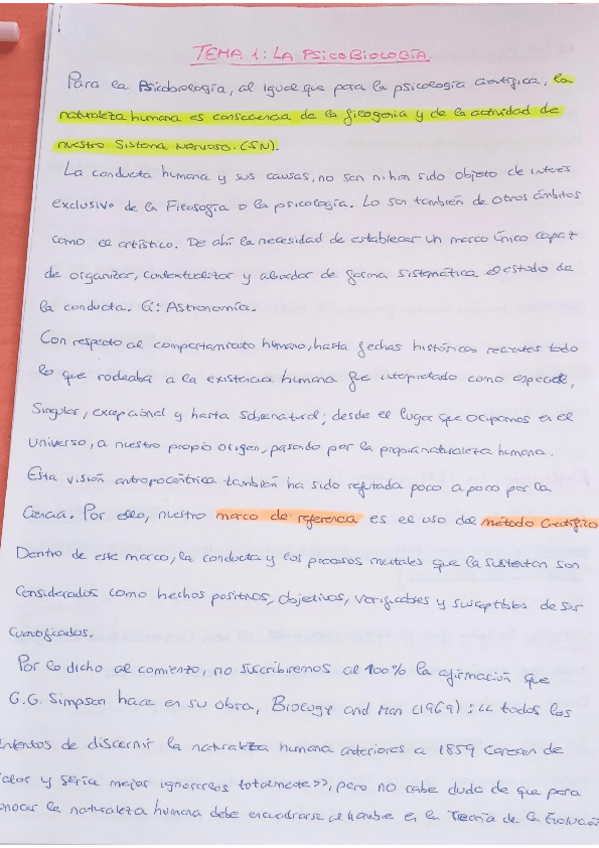 TEMA 1: LA PSICOBIOLOGÍA.
Para la Psicobiología, al igual que para la psicología científica, la
naturaleza humana es consecuencia de la filogenia y de la actividad de
nuestro Sistema Nervioso. (SN).
La conducta humana y sus causas, no son ni han sido objeto de interés
exclusivo de la Filosofía o la psicología. Lo son también de otros ámbitos
como el artístico. De ahí la necesidad de establecer un marco único capaz
de organizar, contextualizar y abordar de forma sistemática el estudio de
la conducta. Ej: Astronomía.
Con respecto al comportamiento humano, hasta fechas históricas recientes todo
lo que rodeaba a la existencia humana fue interpretado como especial,
singular, excepcional y hasta sobrenatural; desde el lugar que ocupamos en el
Universo, a nuestro propio origen, pasando por la propia naturaleza humana.
Esta visión antropocéntrica también ha sido refutada poco a poco por la
Ciencia. Por ello, nuestro marco de referencia es el uso del método Científico
Dentro de este marco, la conducta y los procesos mentales que la sustentan son
considerados como hechos positivos, objetivos, verificables y susceptibles de ser
cuantificados.
Por lo dicho al comienzo, no suscribiremos al 100% la afirmación que
G.G. Simpson hace en su obra, Biology and Man (1969): << todos los
intentos de discernir la naturaleza humana anteriores a 1859 carecen de
valor y sería mejor ignorarlos totalmente>>, pero no cabe duda de que para
conocer la naturaleza humana debe encuadrarse al hombre en la Teoría de la Evolución